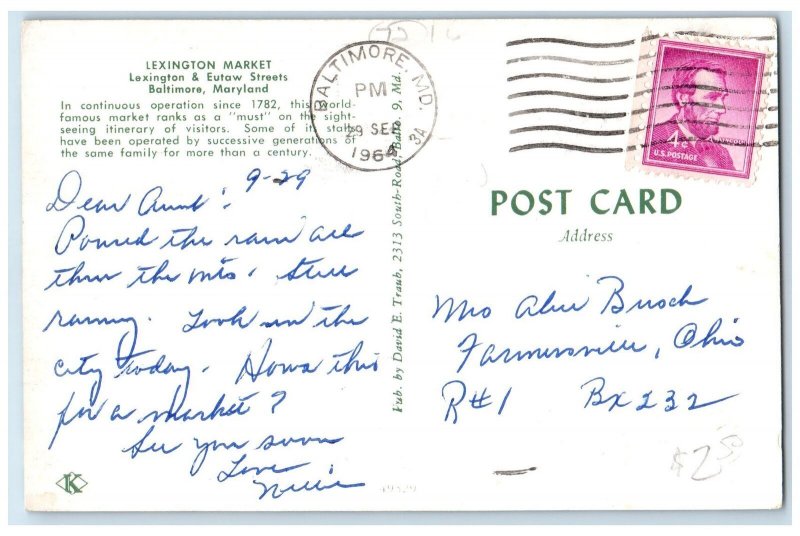 LEXINGTON MARKET
Lexington & Eutaw Streets
Baltimore, Maryland
In continuous operation since 1782, this world-
famous market ranks as a "must" on the sight-
seeing itinerary of visitors. Some of its stalls
have been operated by successive generations of
the same family for more than a century.
9-29
Dear Aunt:
Poured the rain all
thru the mts. Still
raining. Look in the
city today. Hows this
for a market?
See you soon
Love
K
Pub. by David E. Traub, 2313 South-Road, Balto. 9, Md.
49529
BALTIMORE, MD.
PM
29 SEP
1964
3A
4¢
U.S. POSTAGE
LINCOLN
POST CARD
Address
Mrs Alice Busch
Farmersville, Ohio
R#1 Bx 232
$2.50